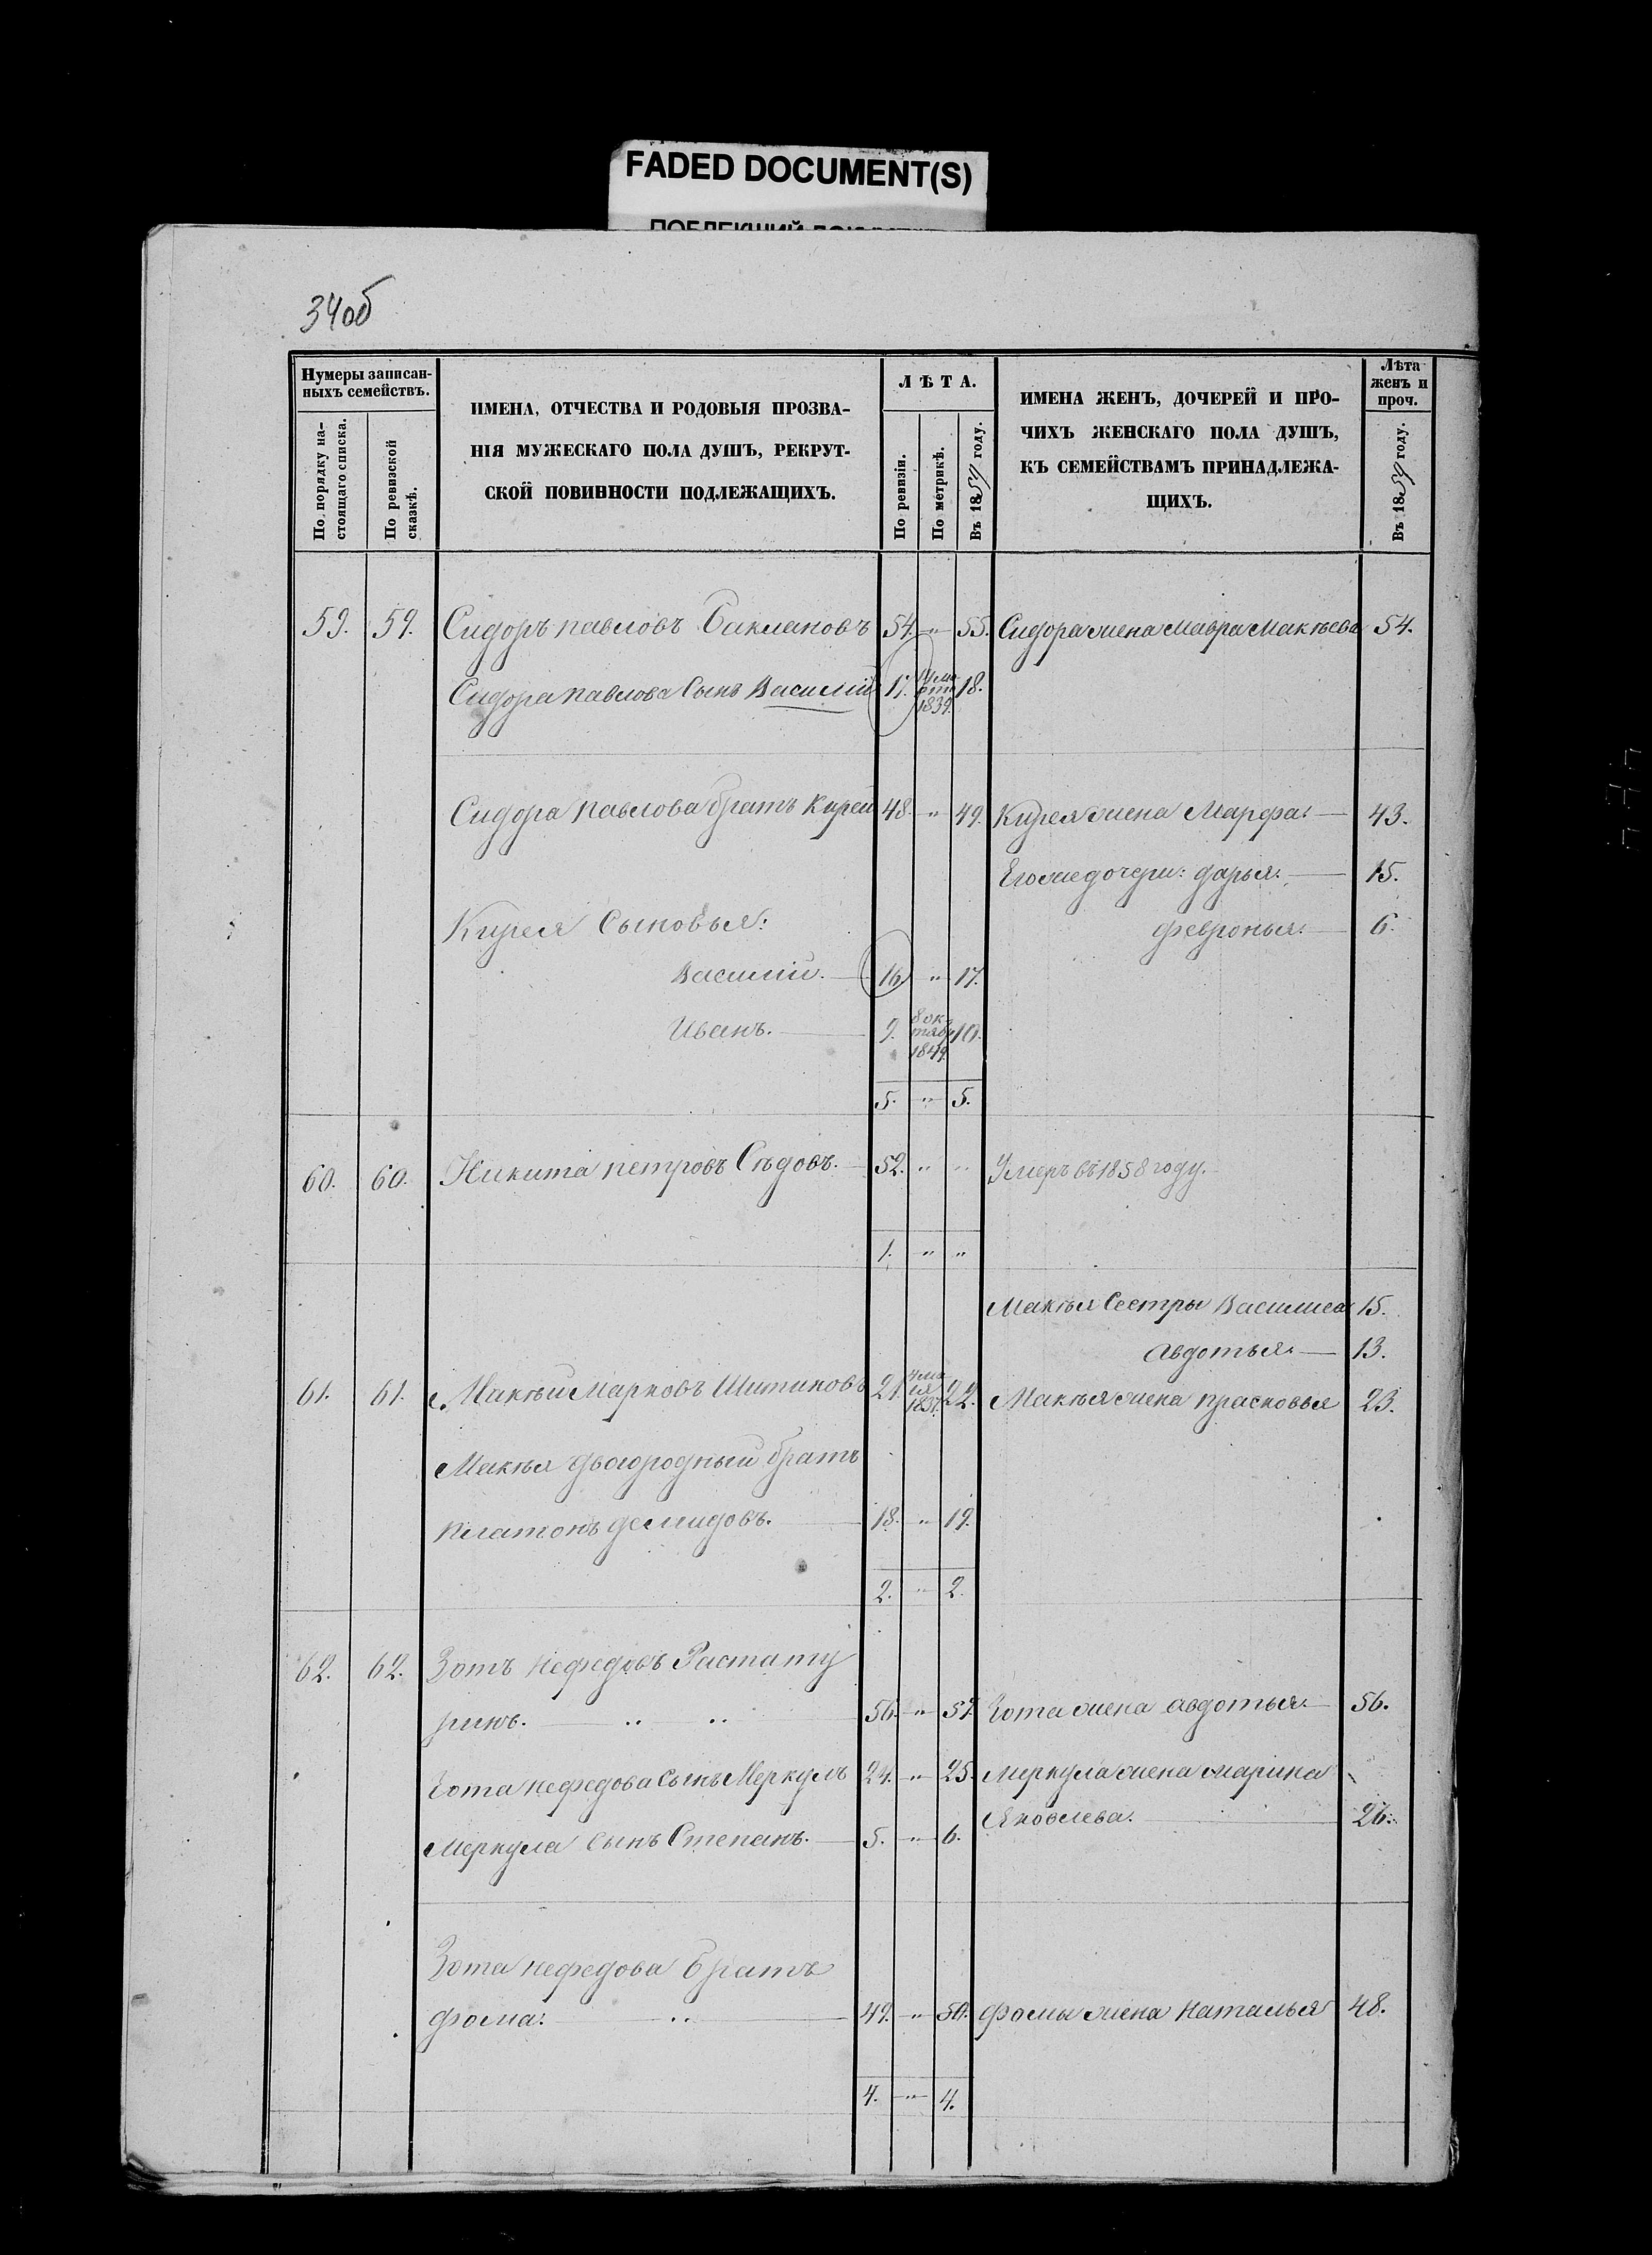 FADED DOCUMENT(S)
34об
Нумеры записан-
ныхъ семействъ.
По порядку на-
стоящаго списка.
По ревизской
сказкѣ.
ИМЕНА, ОТЧЕСТВА И РОДОВЫЯ ПРОЗВА-
НІЯ МУЖЕСКАГО ПОЛА ДУШЪ, РЕКРУТ-
СКОЙ ПОВИННОСТИ ПОДЛЕЖАЩИХЪ.
ЛѢТА.
По ревизіи.
По метрикѣ.
Въ 1859 году.
ИМЕНА ЖЕНЪ, ДОЧЕРЕЙ И ПРО-
ЧИХЪ ЖЕНСКАГО ПОЛА ДУШЪ,
КЪ СЕМЕЙСТВАМЪ ПРИНАДЛЕЖА-
ЩИХЪ.
Лѣта
женъ и
проч.
Въ 1859 году.
59. 59. Сидоръ павловъ Баклановъ 54. „ 55. Сидора жена Мавра Макѣева 54.
Сидора павлова Сынъ Василій 17. 1839. 18.
Сидора павлова братъ Кирей 48. „ 49. Кирея жена Марфа: 43.
Его же дочери: дарья: 15.
Кирея Сыновья: февронья: 6.
Василій. 16. „ 17.
Иванъ. 9. 8 ок-
табр 10.
1849.
5. „ 5.
60. 60. Никита петровъ Сѣдовъ. 52. „ „ Умеръ въ 1858 году.
1. „ „
Макѣя Сестры Василиса 15.
авдотья. 13.
61. 61. Макѣй Марковъ Шитиковъ 21. 1837. 22. Макѣя жена прасковья 23.
Макѣя двоюродный братъ
платонъ демидовъ. 18. „ 19.
2. „ 2.
62. 62. Зотъ нефедовъ Растату
ринъ. „ „ 56. „ 57. Зота жена авдотья. 56.
Зота нефедова сынъ Меркулъ 24. „ 25. Меркула жена марина
Яковлева. 26.
Меркула сынъ Степанъ. 5. „ 6.
Зота нефедова братъ
фома: „ 49. „ 50. фомы жена наталья 48.
4. „ 4.